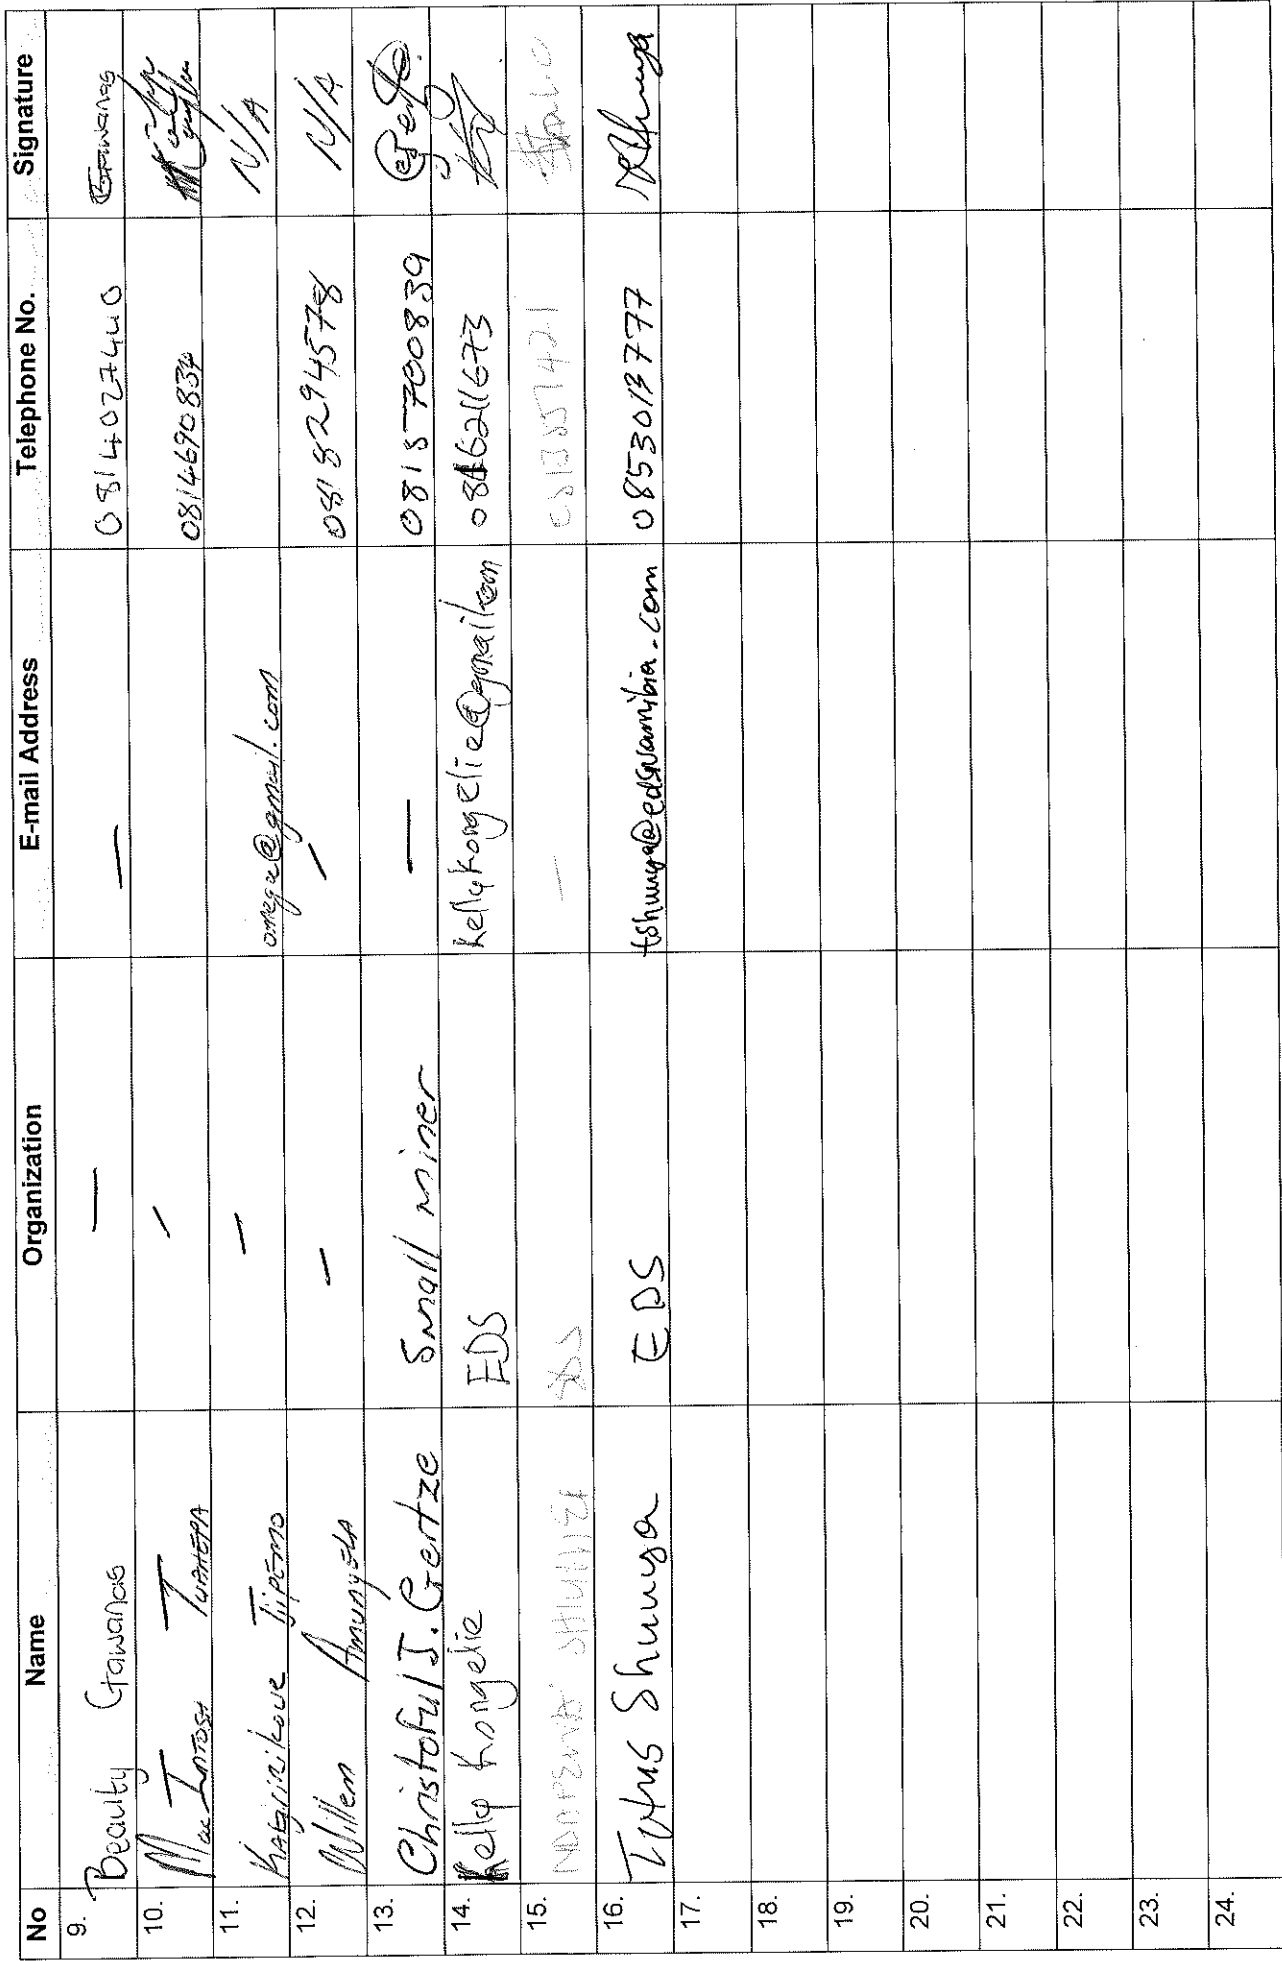 No Name Organization E-mail Address Telephone No. Signature
9. Beaulty Gawanas — — 0814027440 Gawanas
10. Mac Intosh Tuahepa - 0814690834
11. Karirikove Tjipemo - omega@gmail.com N/A
12. Willem Amunyela - - 0818294578 N/A
13. Christoful J. Gertze Small miner — 0815700839
14. Kelly Kongelie EDS kellykongelie@gmail.com 0816211673
15. — 
16. Titus Shunya EDS tshunya@edsnamibia.com 0853013777
17.
18.
19.
20.
21.
22.
23.
24.